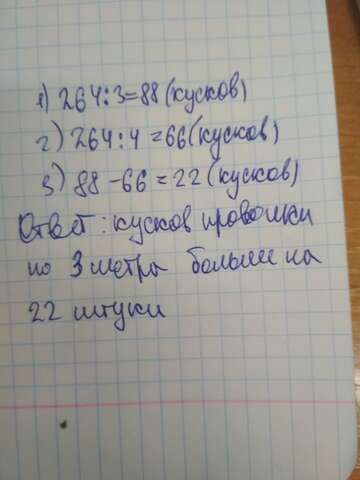 1) 264:3=88 (кусков)
2) 264:4=66 (кусков)
3) 88-66=22 (кусков)
Ответ: кусков проволки
по 3 метра больше на
22 штуки